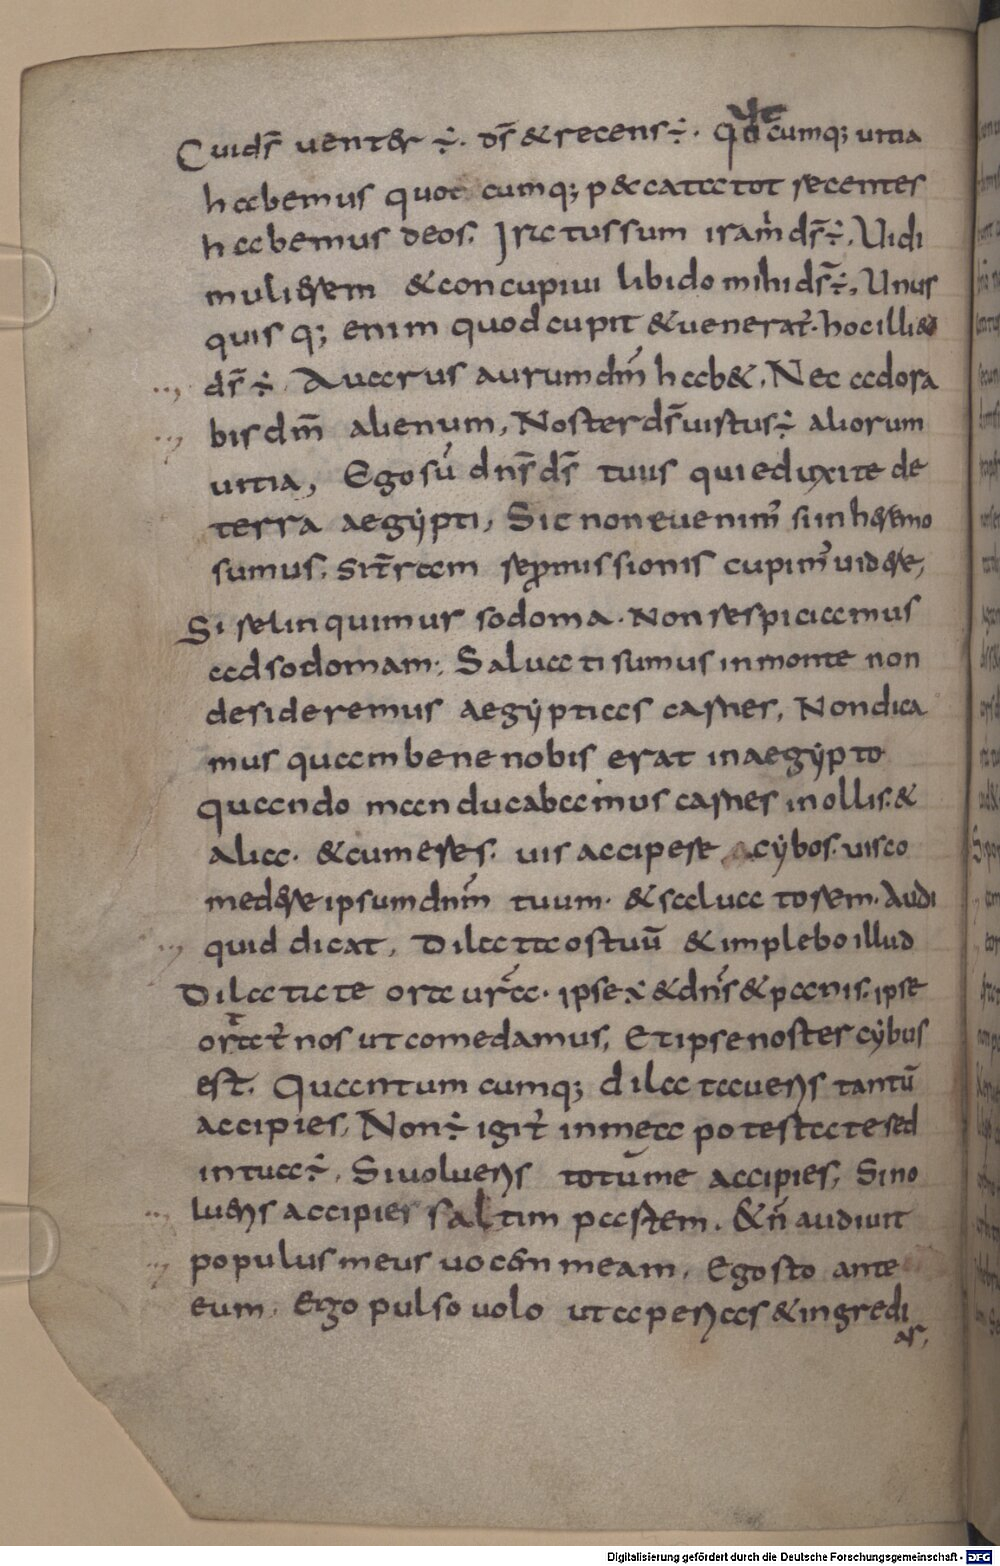 Cuids̄ uent&r ÷. ds̄ & recens ÷. Quodcumq; uitia
habemus quot cumq; peccata tot recentes
habemus deos. Iratus sum ira m̄ ds̄ ÷. Uidi
mulierem & concupiui libido mihi ds̄ ÷. Unus
quisq; enim quod cupit & ueneratˀ. hoc illi &
ds̄ ÷. Auarus aurum dm̄ hab&. Nec adora
bis dm̄ alienum. Noster ds̄ uistus ÷ aliorum
uitia, Ego sū dns̄ ds̄ tuus qui eduxi te de
terra aegÿpti, Sic non euenimˀ si in heremo
sumus. Si t̄ram repmissionis cupimˀ uidere,
Si relinquimur sodoma. Non respiciamus
ad sodomam. Saluati sumus in monte non
desideremus aegÿptias carnes, Non dica
mus quam bene nobis erat in aegÿpto
quando manducabamus carnes in ollis. &
alia. & cumeres. uis accipere cÿbos. uis co
medere ipsum dnm̄ tuum. & saluatorem. Audi
quid dicat. Dilata os tuū & implebo illud
Dilatate ora ur̄a. ipse x & dns̄ & panis. ipse
ortatˀ nos ut comedamus, Et ipse noster cÿbus
est. Quantum cumq; dilatauerˀs tantū
accipies, Non ÷ igitˀ in mea potestate sed
in tua ÷. Si uoluerˀs totū me accipies, Si no
luerˀs accipies saltim partem. & n̄ audiuit
populus meus uocem meam. Ego sto ante
eum. Ego pulso uolo ut aperˀas & ingredi
ar,
Digitalisierung gefördert durch die Deutsche Forschungsgemeinschaft - DFG